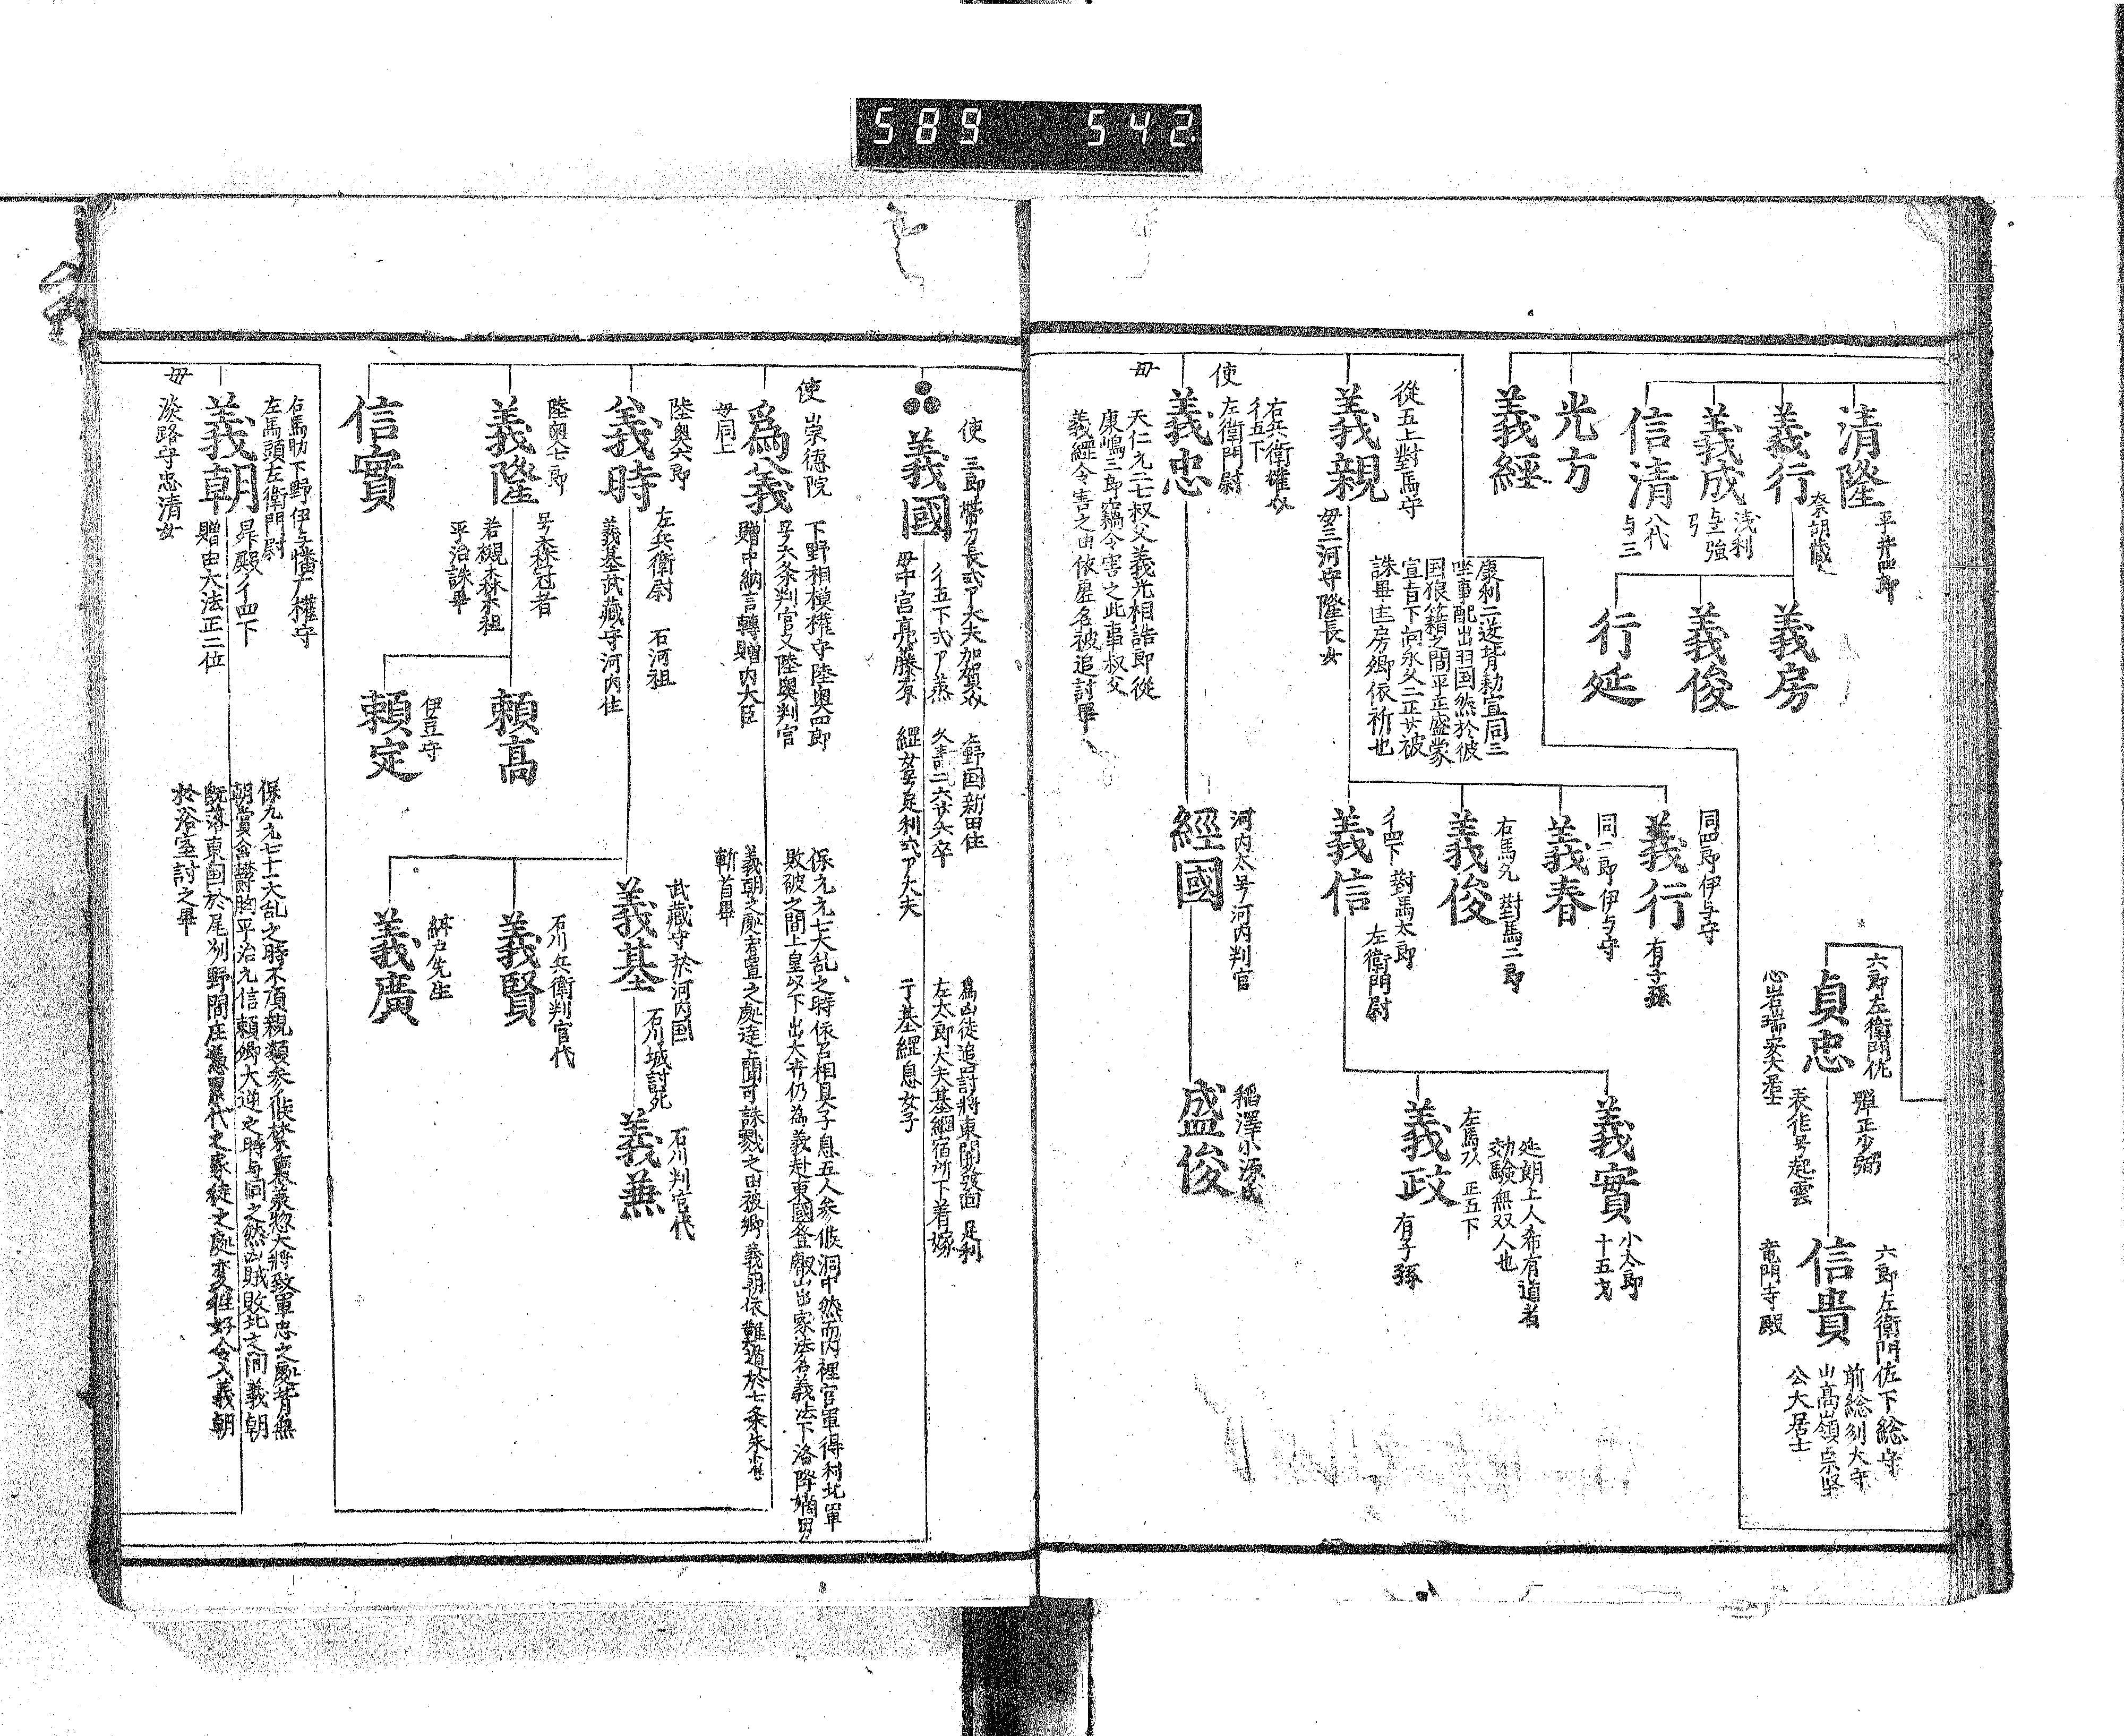 589 542
清隆
平井四郎
義行
奈胡蔵人
義成
浅利
与強
信清
八代
与三
光方
義經
義房
義俊
行延
六郎左衛門佐
貞忠
心岩瑞安大居士
弾正少弼
表作号起雲
六郎左衛門佐下総守
信貴
竜門寺殿
前総刕大守
山高嶺宗堅
公大居士
從五上對馬守
義親
母三河守隆長女
康和二逆背勅宣同三
坐事配出羽国然於彼
国狼籍之間平正盛蒙
宣旨下向永久二正廿被
誅畢匡房卿依祈也
同四郎伊与守
義行
有子孫
同二郎伊与守
義春
右馬允 對馬二郎
義俊
彳四下 對馬太郎
左衛門尉
義信
義實
小太郎
十五才
延朗上人希有道者
効験無双人也
左馬以 正五下
義政
有子孫
使
右兵衛權以
彳五下
左衛門尉
義忠
母
天仁九二七叔父義光相語郎從
康嶋三郎竊令害之此事叔父
義經令害之由依歴名被追討畢
河内太号河内判官
經國
稲澤小源氏
盛俊
使 三郎帶刀長式ア大夫加賀以
義國
彳五下式ア羔
母中宮亮藤有
經女号足利式ア大夫
上野国新田住
久壽二六廿六卒
爲凶徒追討將東關發向 足利
左太郎大夫基綱宿所下着嫁
于基經息女子
使 崇德院
爲義
母同上
下野相模權守陸奥四郎
号六条判官又陸奥判官
贈中納言轉贈内大臣
保元元七大乱之時依召相具子息五人参候洞中然而内裡官軍得利北軍
敗破之間上皇以下出大奔仍為義赴東國登叡山出家法名義法下洛降嫡男
義朝之處宥置之處達上聞可誅戮之由被仰義朝依難遁於七条朱雀
斬首畢
陸奥六郎
義時
左兵衛尉 石河祖
義基武藏守河内住
武藏守於河内国
義基
石川城討死
石川判官代
義兼
石川兵衛判官代
義賢
義廣
陸奥七郎
義隆
号森冠者
若槻森祖
平治誅畢
頼高
伊豆守
頼定
信實
右馬助下野伊与幡广權守
左馬頭左衛門尉
義朝
昇殿彳四下
贈由大法正二位
母
淡路守忠清女
保元元七十一大乱之時不頂親類参候禁裏義惣大將致軍忠之處背無
朝賞含鬱昀平治元信頼卿大逆之時与同之然凶賊敗北之間義朝
既落東国於尾刕野間庄憑累代之家徒之處変雅好令入義朝
於浴室討之畢